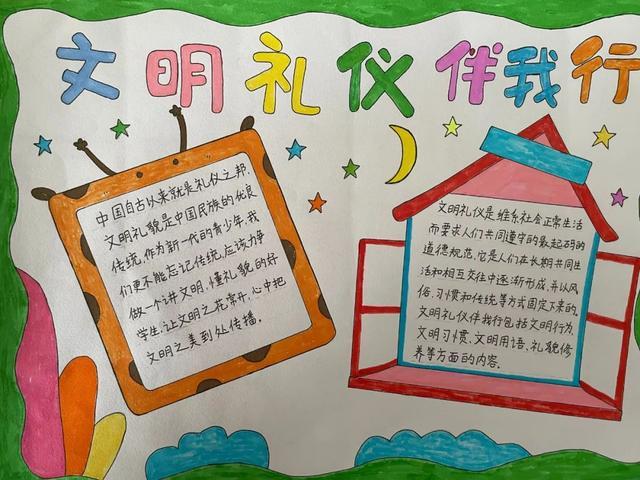 文明礼仪伴我行
中国自古以来就是礼仪之邦,
文明礼貌是中国民族的优良
传统,作为新一代的青少年,我
们更不能忘记传统,应该力争
做一个讲文明,懂礼貌的好
学生,让文明之花常开,心中把
文明之美到处传播。
文明礼仪是维系社会正常生活
而要求人们共同遵守的最起码的
道德规范,它是人们在长期共同生
活和相互交往中逐渐形成,并以风
俗、习惯和传统等方式固定下来的。
文明礼仪伴我行包括文明行为、
文明习惯、文明用语、礼貌修
养等方面的内容。